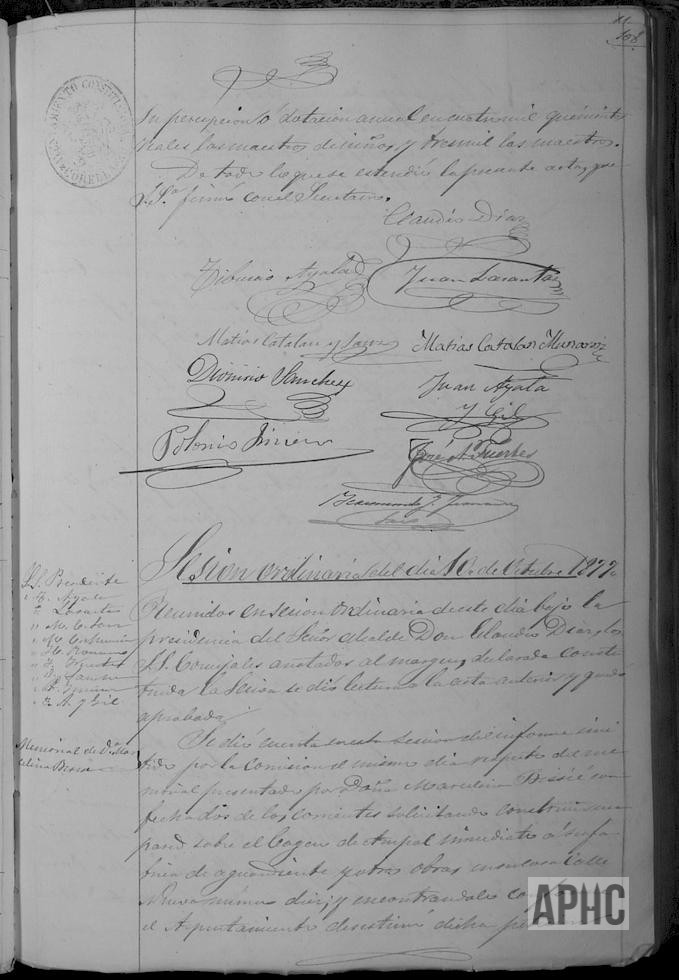 108
su percepcion ó dotacion anual en cuatro mil quinientos
reales los maestros de niños, y tres mil las maestras.
De todo lo que se estendió la presente acta, que
S.Sª firmó con el Secretario.
Claudio Diaz
Tiburcio Ayala
Juan Lasanta
Matias Catalan y
Matias Catalan Munarriz
Dionisio Sanchez
Juan Ayala
y Gil
Polonio Jimenez
José A. Fuertes
Sesion ordinaria del dia 10 de Octubre 1877
S.S. Presidente
" Ayala
" Lasanta
" M. C.
" M. C. Munarriz
" Fuertes
" Sanchez
" Jimenez
" A. y Gil
Reunidos en sesion ordinaria de este dia bajo la
presidencia del Señor Alcalde Don Claudio Diaz, los
S.S. Concejales anotados al margen, declarada consti-
tuida la Sesion se dió lectura a la acta anterior y quedó
aprobada
Memorial de Dª Mar
celina
Se dió cuenta en esta sesion del informe emi
tido por la Comision el mismo dia respecto del me
morial presentado por Doña Marcelina con
fecha dos de los corrientes solicitando construir una
pared sobre el de inmediato á su fá
brica de aguardiente y otras obras en su casa Calle
Nueva número diez; y encontrandole
el Ayuntamiento desestimó dicha
APHC